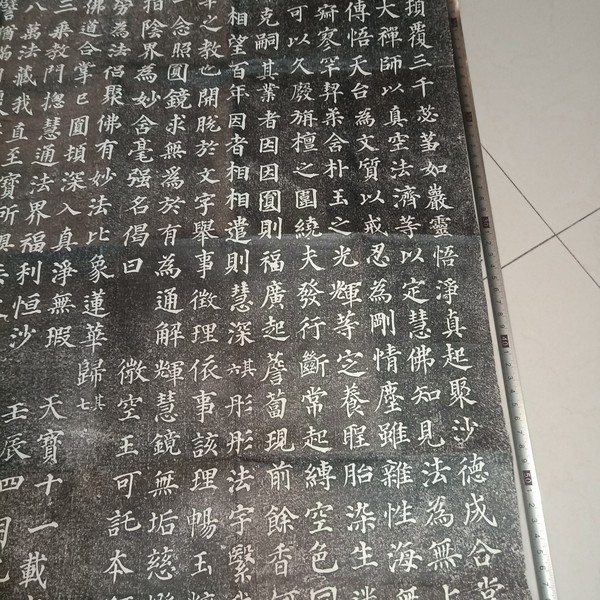 項覆三千苾蒭如巖靈悟淨真起聚沙德成合掌
大禪師以真空法濟等以定慧佛知見法為無上
傅悟天台為文質以戒忍為剛情塵雖雜性海無
寒罕羿柔含朴玉之光輝等定養聖胎染生迷
可以久廢旃檀之圍繞夫發行斷常起縛空色同
克嗣其業者因因圓則福廣起薝蔔現前餘香何
相望百年因者相相遣則慧深其六彤彤法宇繄我
之教也開脫於文字舉事徵理依事該理暢玉粹
念照圓鏡求無為於有為通解輝慧鏡無垢慈燈
指陰界為妙舍毫强名偈曰 微空王可託本願
勞為法侶聚佛有妙法比象蓮華歸其七
佛道合掌已圓頓深入真淨無瑕 天寶十一載
三乘教門捴慧通法界福利恒沙 壬辰四月
八萬法藏我直至寶所俱